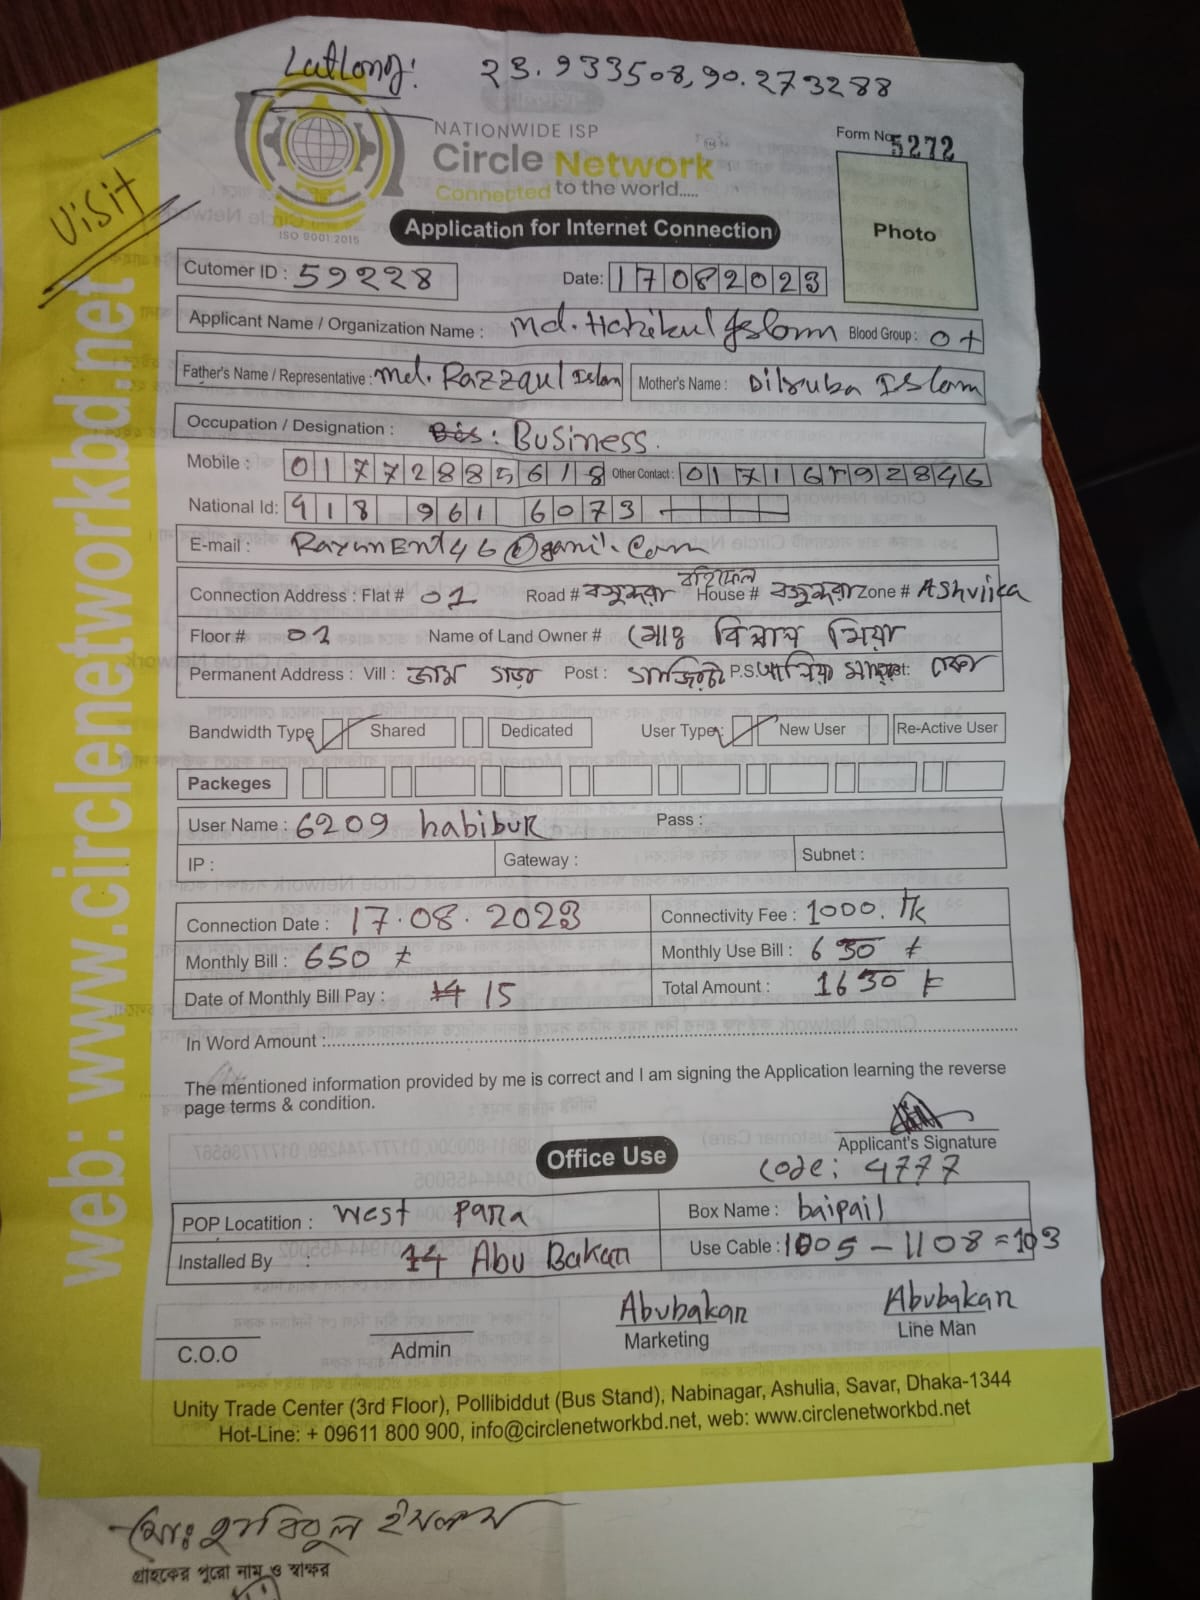 LatLong: 23.933508,90.273288
Visit
NATIONWIDE ISP
Circle Network
Connected to the world.....
ISO 9001:2015
Form No. 5272
Photo
Application for Internet Connection
Cutomer ID : 59228 Date: 17082023
Applicant Name / Organization Name : Md. Islam Blood Group : O+
Father's Name / Representative : Md. Razzaqul Islam Mother's Name : Dilruba Islam
Occupation / Designation : Business.
Mobile : 01772885618 Other Contact :
National Id: 918 961 6073
E-mail :
Connection Address : Flat # 01 Road # বসুন্ধরা House # বসুন্ধরা Zone #
Floor # 01 Name of Land Owner # মোঃ মিয়া
Permanent Address : Vill : Post : P.S.
Bandwidth Type Shared Dedicated User Type: New User Re-Active User
Packeges
User Name : 6209 habibur Pass :
IP : Gateway : Subnet :
Connection Date : 17.08.2023 Connectivity Fee : 1000. Tk
Monthly Bill : 650 Monthly Use Bill : 630
Date of Monthly Bill Pay : 15 Total Amount : 1630
In Word Amount :
The mentioned information provided by me is correct and I am signing the Application learning the reverse
page terms & condition.
Applicant's Signature
Office Use
Code: 4777
POP Locatition : West Para Box Name : baipail
Installed By : 14 Abu Bakar Use Cable : 1005 - 1108 = 103
Abubakar Abubakar
C.O.O Admin Marketing Line Man
web: www.circlenetworkbd.net
Unity Trade Center (3rd Floor), Pollibiddut (Bus Stand), Nabinagar, Ashulia, Savar, Dhaka-1344
Hot-Line: + 09611 800 900, info@circlenetworkbd.net, web: www.circlenetworkbd.net
মোঃ হাবিবুল ইসলাম
গ্রাহকের পুরো নাম ও স্বাক্ষর